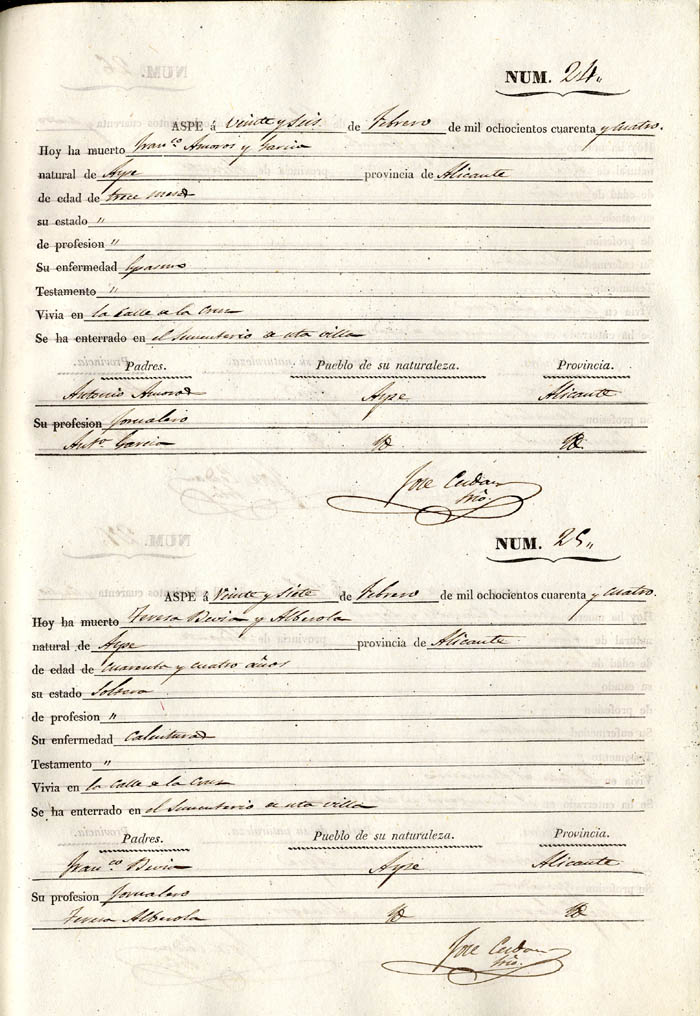 NUM. 24.
ASPE á Veinte y Seis de Febrero de mil ochocientos cuarenta y cuatro.
Hoy ha muerto Franco Amoros y Garcia
natural de Aspe provincia de Alicante
de edad de trece meses
su estado "
de profesion "
Su enfermedad Espasmo
Testamento "
Vivia en la Calle de la Cruz
Se ha enterrado en el Sementerio de esta villa
Padres. Pueblo de su naturaleza. Provincia.
Antonio Amoros Aspe Alicante
Su profesion Jornalero
Anta Garcia Id Id
Jose
NUM. 25.
ASPE á Veinte y Siete de Febrero de mil ochocientos cuarenta y cuatro.
Hoy ha muerto Teresa Bevia y Alberola
natural de Aspe provincia de Alicante
de edad de cuarenta y cuatro años
su estado Soltera
de profesion "
Su enfermedad Calenturas
Testamento "
Vivia en la Calle de la Cruz
Se ha enterrado en el Sementerio de esta villa
Padres. Pueblo de su naturaleza. Provincia.
Franco Bevia Aspe Alicante
Su profesion Jornalero
Teresa Alberola Id Id
Jose